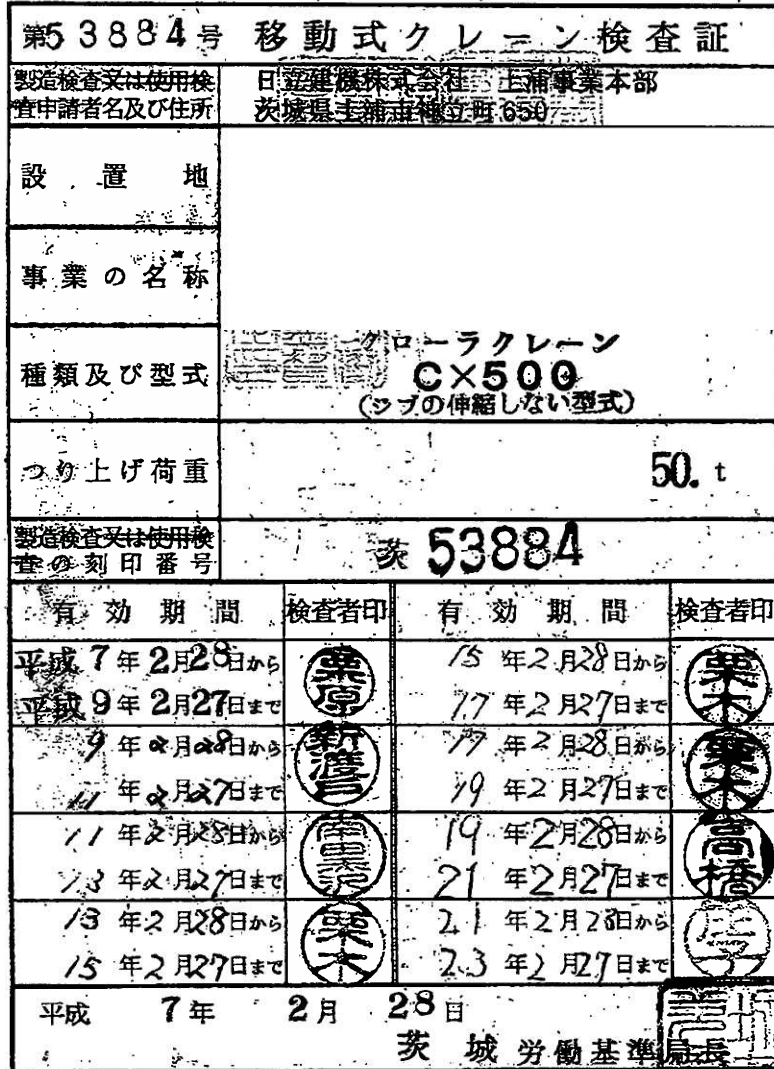 第53884号 移動式クレーン検査証
製造検査又は使用検
査申請者名及び住所
日立建機株式会社 土浦事業本部
茨城県土浦市神立町650
設置地
事業の名称
種類及び型式
クローラクレーン
CX500
(ジブの伸縮しない型式)
つり上げ荷重
50. t
製造検査又は使用検
査の刻印番号
茨 53884
有効期間 検査者印 有効期間 検査者印
平成7年2月28日から
平成9年2月27日まで
栗原
15年2月28日から
17年2月27日まで
栗木
9年2月28日から
11年2月27日まで
新渡戸
17年2月28日から
19年2月27日まで
栗木
11年2月28日から
13年2月27日まで
19年2月28日から
21年2月27日まで
高橋
13年2月28日から
15年2月27日まで
栗木
21年2月28日から
23年2月27日まで
平成 7年 2月 28日
茨城労働基準局長